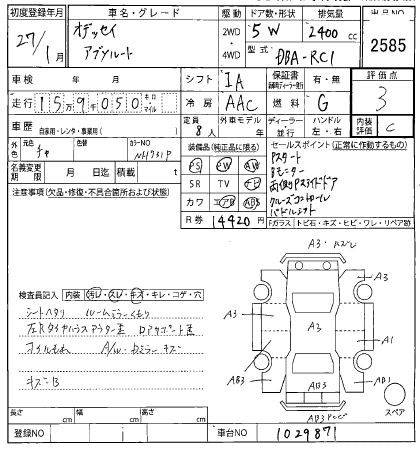 初度登録年月 車名・グレード 駆動 ドア数・形状 排気量 出品NO
27/1 オデッセイ アブソルート 2WD・4WD 5W 2400cc 2585
型式 DBA-RC1
車検 年 月 シフト IA 保証書 有・無 評価点
走行 159050 キロ・マイル 冷房 AAC 燃料 G 3
車歴 自家用・レンタ・事業用( ) 定員 8人 外車モデル 年 ディーラー・並行 ハンドル 左・右 内装評価 C
外色 元色 チャ 色替 カラーNO NH731P
装備品(純正品に限る) セールスポイント(正常に作動するもの)
名義変更期限 月 日迄 積載 t
PS PW AW
SR TV ナビ
カワ エアB ABS
R券 14420円
Pスタート
Bモニター
両側Pスライドドア
クルーズコントロール
パドルシフト
注意事項(欠品・修復・不具合箇所および状態)
Fガラス トビ石・キズ・ヒビ・ワレ・リペア跡
検査員記入 内装 汚レ・スレ・キズ・キレ・コゲ・穴
シートヘタリ ルームミラーくもり
オイルもれ A/W・ドアミラーキズ
キズ:B
A3
A3
A3
A3
A1
A3
AB3
AB3
AB1
AB3
スペア
長さ cm 幅 cm 高さ cm
登録NO 車台NO 1029871